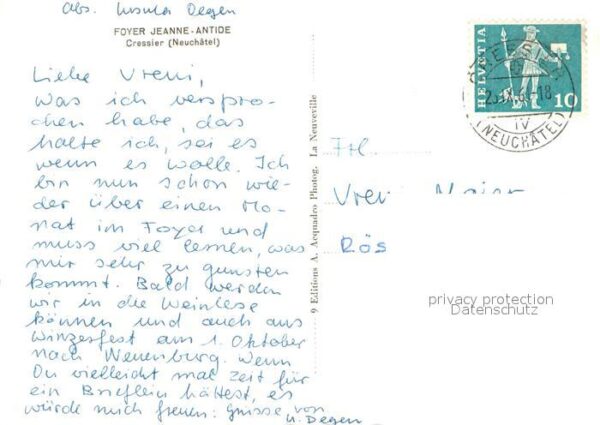 Abs. Ursula Degen
FOYER JEANNE-ANTIDE
Cressier (Neuchâtel)
Liebe Vreni,
Was ich verspro-
chen habe, das
halte ich, sei es
wenn es wolle. Ich
bin nun schon wie-
der über einen Mo-
nat im Foyer und
muss viel lernen, was
mir sehr zu gunsten
kommt. Bald werden
wir in die Weinlese
können und auch ans
Winzerfest am 1. Oktober
nach Neuenburg. Wenn
Du vielleicht mal Zeit für
ein Brieflein hättest, es
würde mich freuen: Grüsse von
U. Degen
9 Editions A. Acquadro Photog. La Neuveville
HELVETIA
10
CRESSIER
-18
IV
(NEUCHÂTEL)
Frl.
Vreni Meier
Rös
privacy protection
Datenschutz